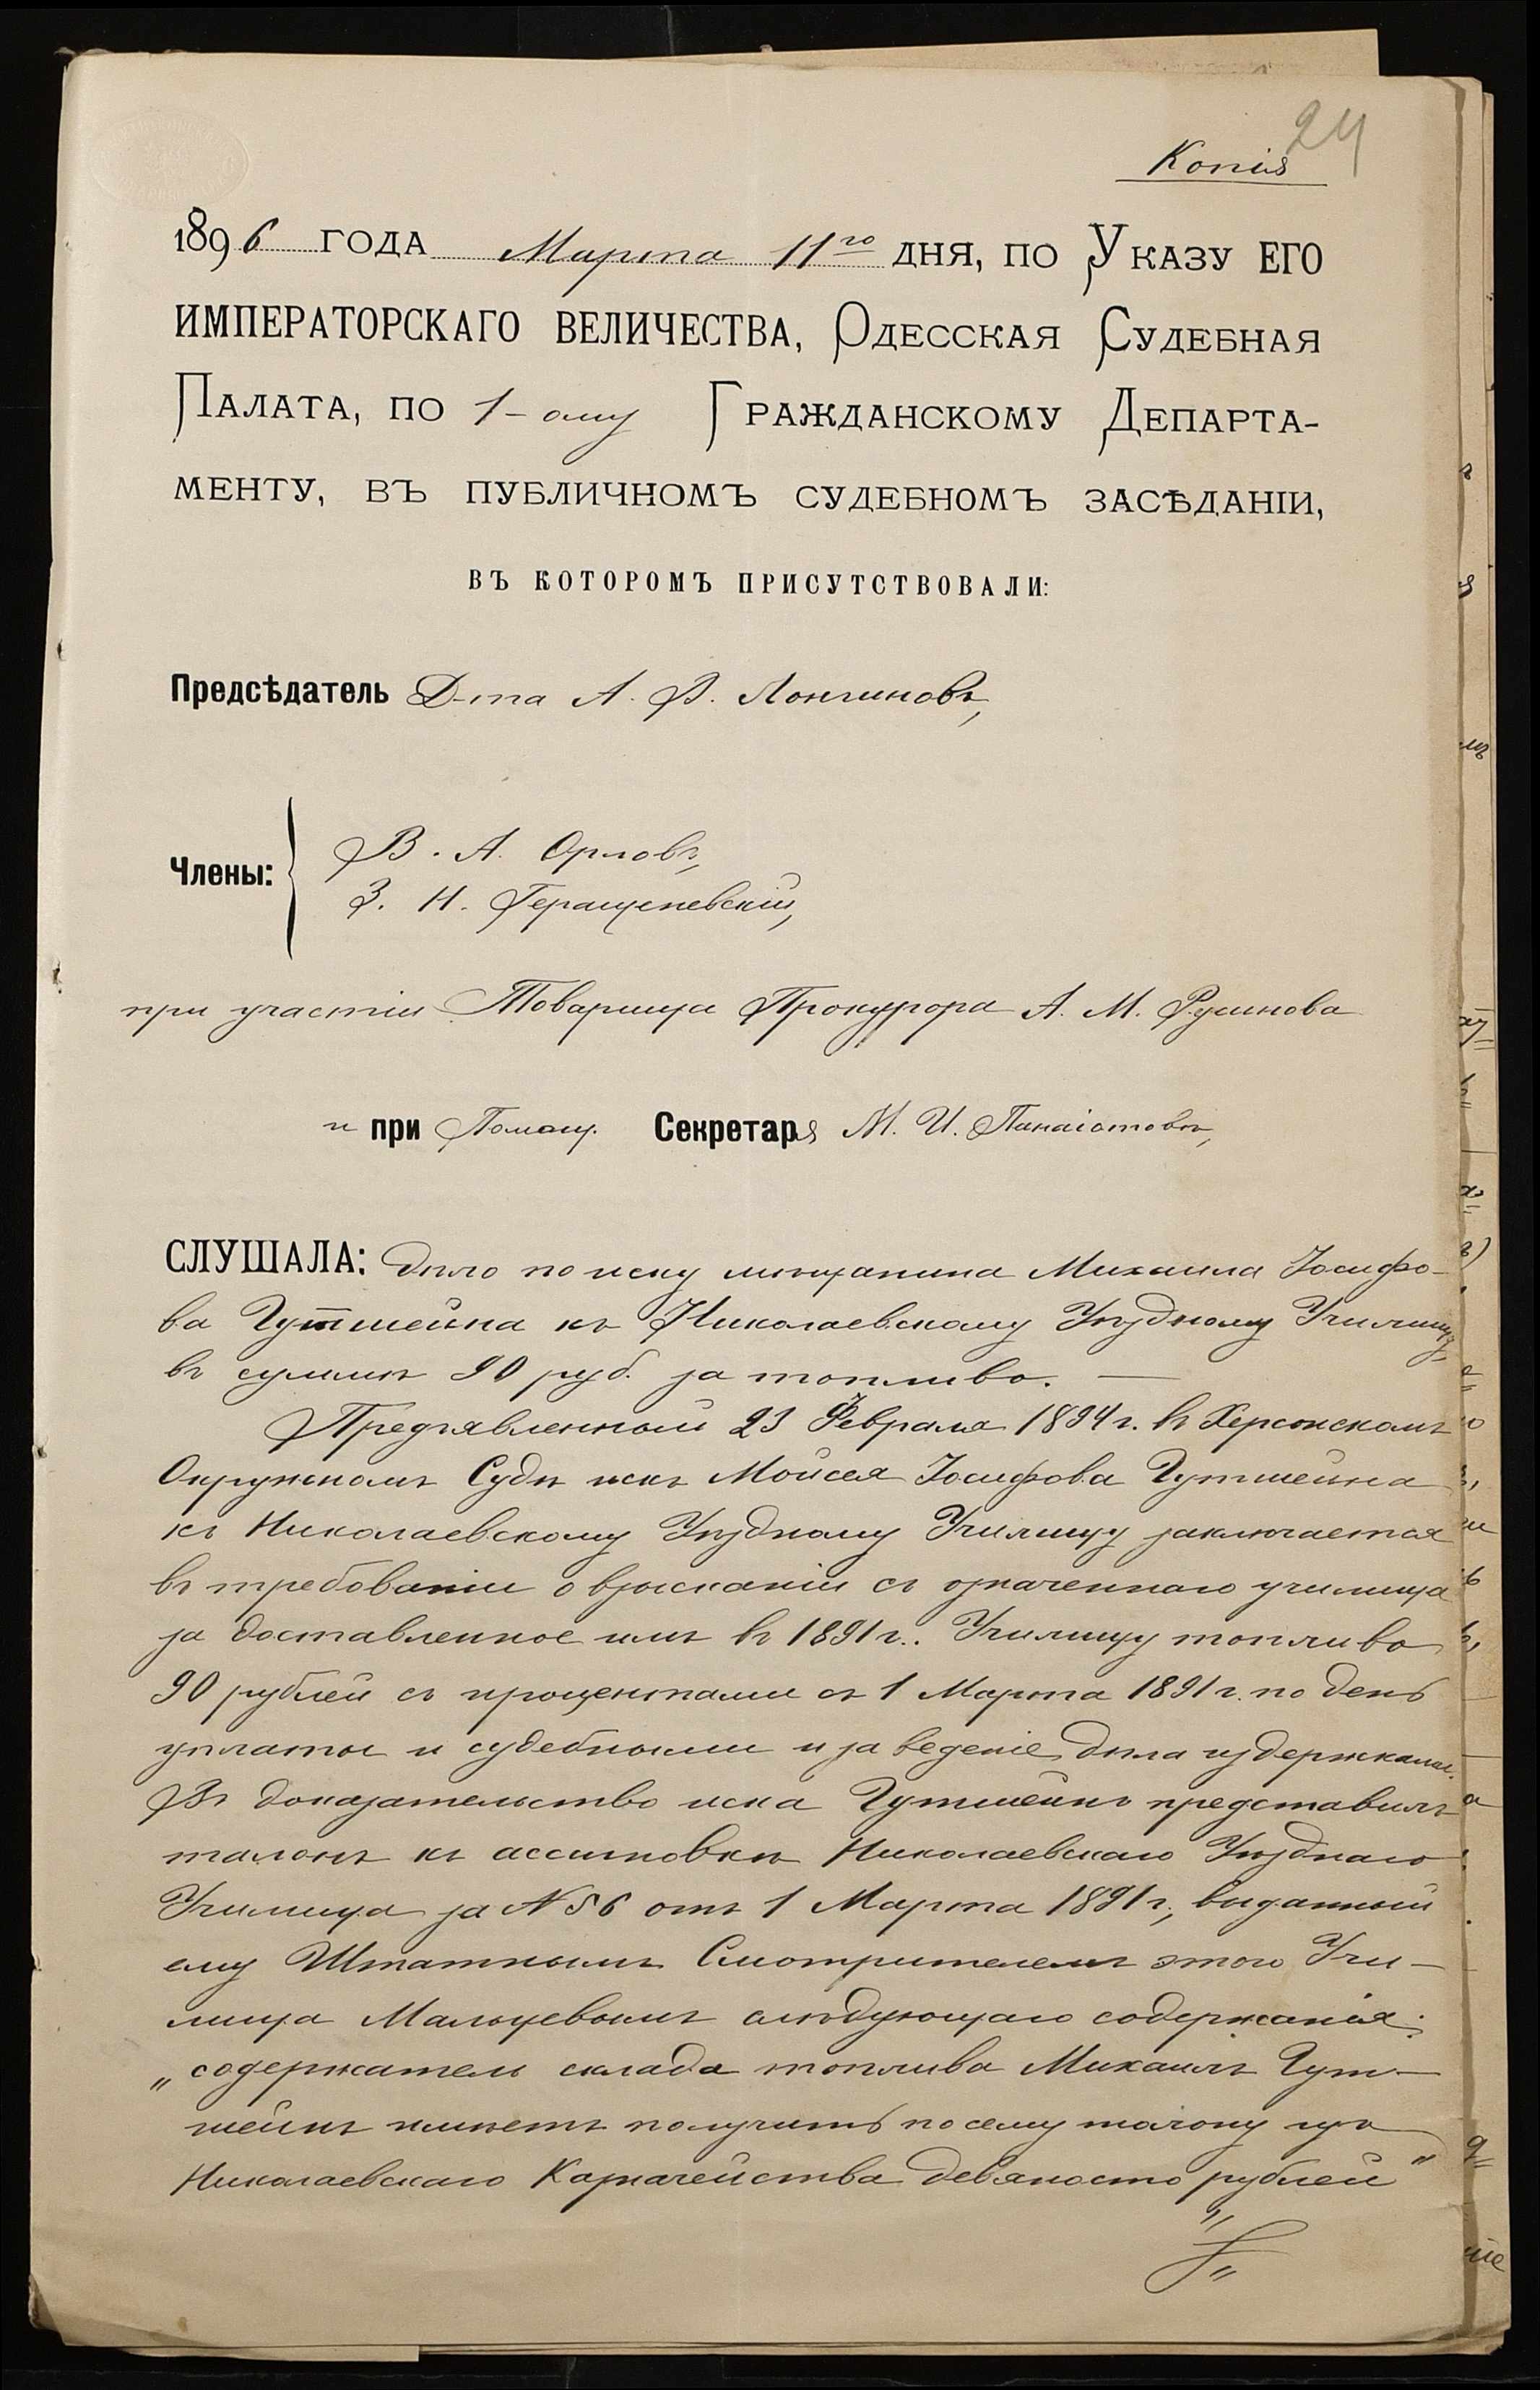 24
Копія
1896 года Марта 11го дня, по Указу ЕГО
ИМПЕРАТОРСКАГО ВЕЛИЧЕСТВА, Одесская Судебная
Палата, по 1-ому Гражданскому Департа-
менту, въ публичномъ судебномъ засѣданіи,
въ которомъ присутствовали:
Предсѣдатель Д-та А. В. Лонгиновъ,
Члены:
В. А. Орловъ,
З. Н. Геращеневскій,
при участіи Товарища Прокурора А. М. Русинова
и при Помощ. Секретаря М. И. Панаіотовѣ,
СЛУШАЛА: дѣло по иску мѣщанина Михаила Іосифо-
ва Гутшейна къ Николаевскому Уѣздному Училищу
въ суммѣ 90 руб. за топливо.
Предъявленный 23 Февраля 1894 г. въ Херсонскомъ
Окружномъ Судѣ искъ Мойсея Іосифова Гутшейна
къ Николаевскому Уѣздному Училищу заключается
въ требованіи о взысканіи съ означеннаго училища
за доставленное имъ въ 1891 г. Училищу топливо
90 рублей съ процентами съ 1 Марта 1891 г. по день
уплаты и судебными и за веденіе дѣла издержками.
Въ доказательство иска Гутшейнъ представилъ
талонъ къ ассигновкѣ Николаевскаго Уѣзднаго
Училища за № 56 отъ 1 Марта 1891 г., выданный
ему Штатнымъ Смотрителемъ этого Учи-
лища Мальцевымъ слѣдующаго содержанія:
„содержатель склада топлива Михаилъ Гут-
шейнъ имѣетъ получить по сему талону изъ
Николаевскаго Казначейства девяносто рублей"